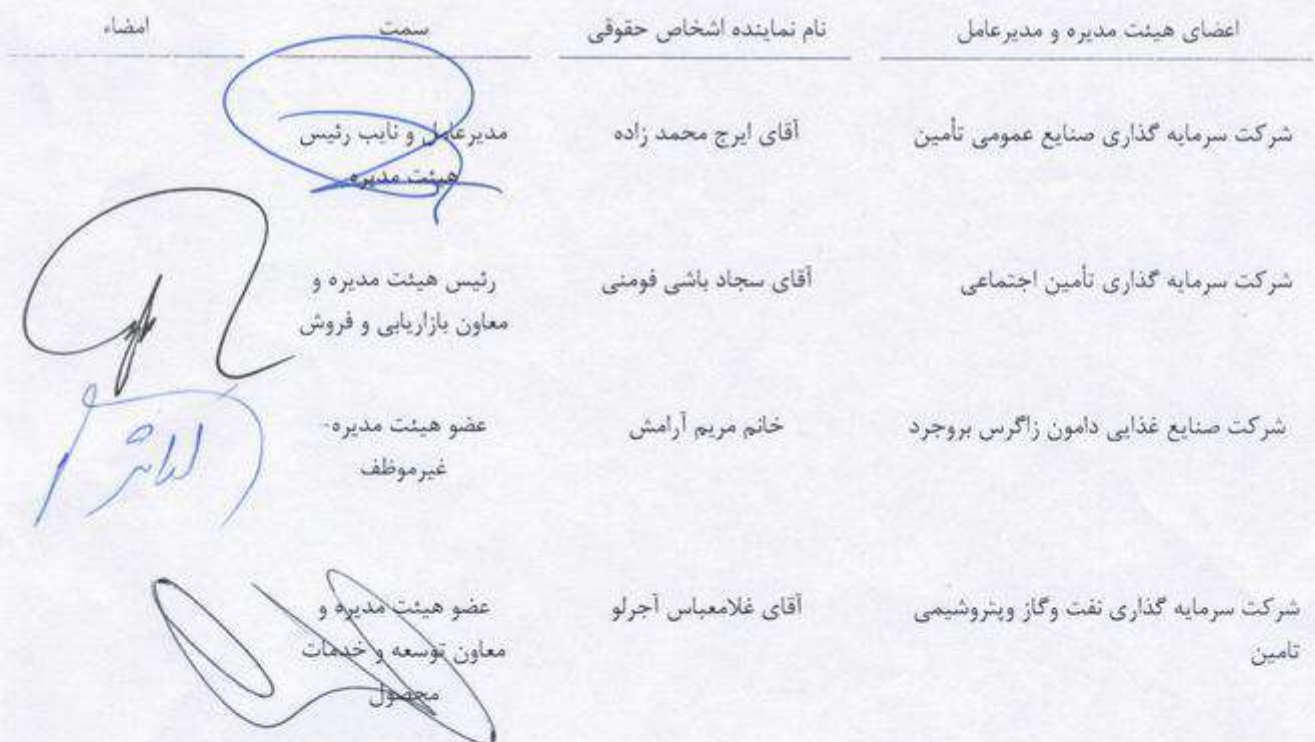 اعضای هیئت مدیره و مدیرعامل	نام نماینده اشخاص حقوقی	سمت	امضاء
شرکت سرمایه گذاری صنایع عمومی تأمین	آقای ایرج محمد زاده	مدیرعامل و نایب رئیس
هیئت مدیره
شرکت سرمایه گذاری تأمین اجتماعی	آقای سجاد باشی فومنی	رئیس هیئت مدیره و
معاون بازاریابی و فروش
شرکت صنایع غذایی دامون زاگرس بروجرد	خانم مریم آرامش	عضو هیئت مدیره-
غیرموظف
شرکت سرمایه گذاری نفت وگاز وپتروشیمی	آقای غلامعباس آجرلو	عضو هیئت مدیره و
تامین	معاون توسعه و خدمات
محصول